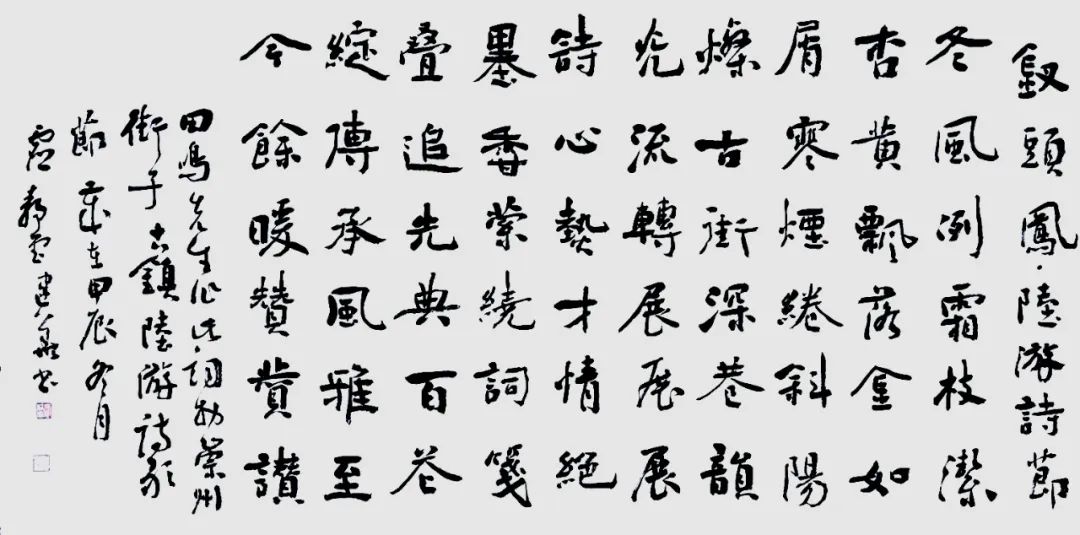 釵頭鳳·陸游詩節
冬風冽霜枝潔
杏黄飄落金如
屑寒煙綣斜陽
燦古街深巷韻
光流轉展展展
詩心熱才情絕
墨香縈繞詞箋
疊追先典百花
綻傳承風雅至
今餘暖贊賛讚
田鳴先生作此詞於崇州
街子古鎮陸游詩歌
節歲在甲辰冬月
静建書